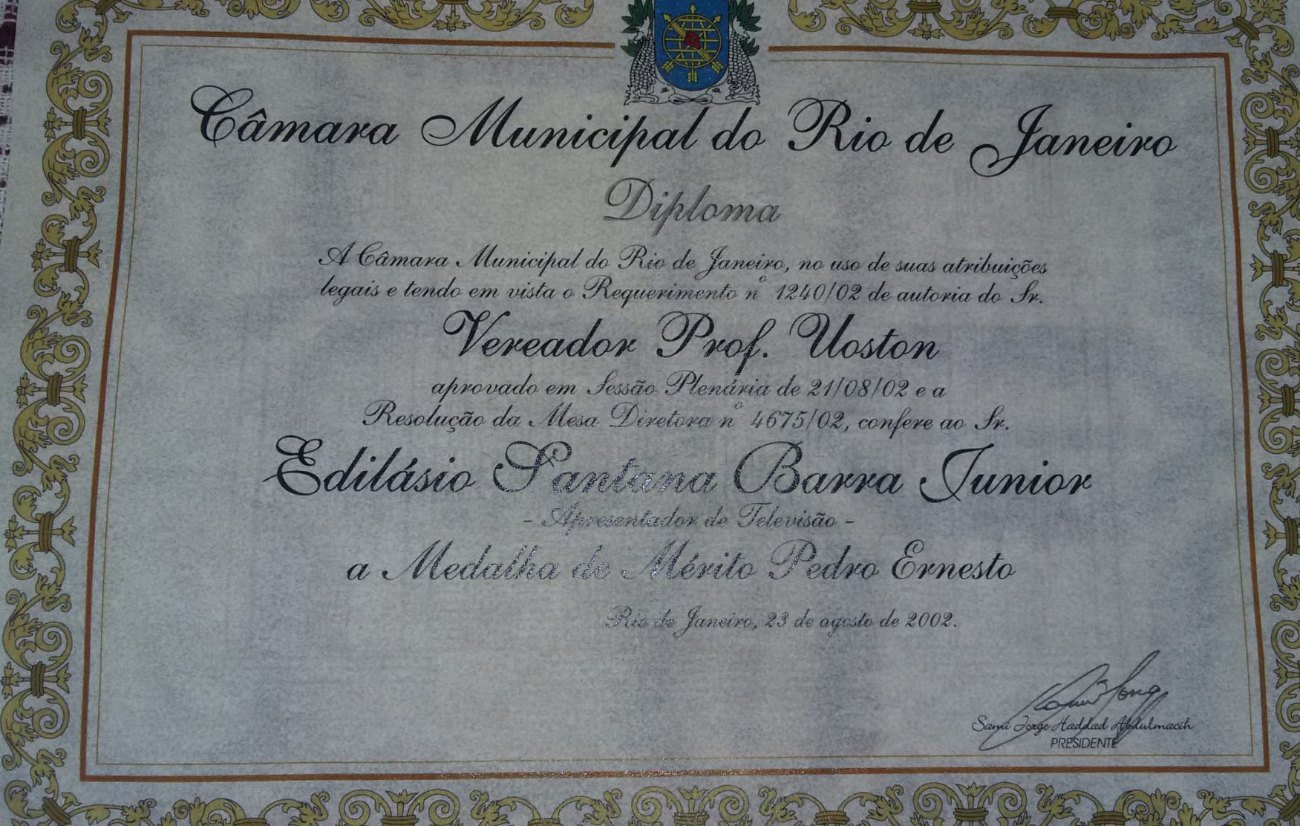 Câmara Municipal do Rio de Janeiro
Diploma
A Câmara Municipal do Rio de Janeiro, no uso de suas atribuições
legais e tendo em vista o Requerimento nº 1240/02 de autoria do Sr.
Vereador Prof. Uoston
aprovado em Sessão Plenária de 21/08/02 e a
Resolução da Mesa Diretora nº 4675/02, confere ao Sr.
Edilásio Santana Barra Junior
- Apresentador de Televisão -
a Medalha de Mérito Pedro Ernesto
Rio de Janeiro, 23 de agosto de 2002.
Sami Jorge Haddad Abdulmacih
PRESIDENTE